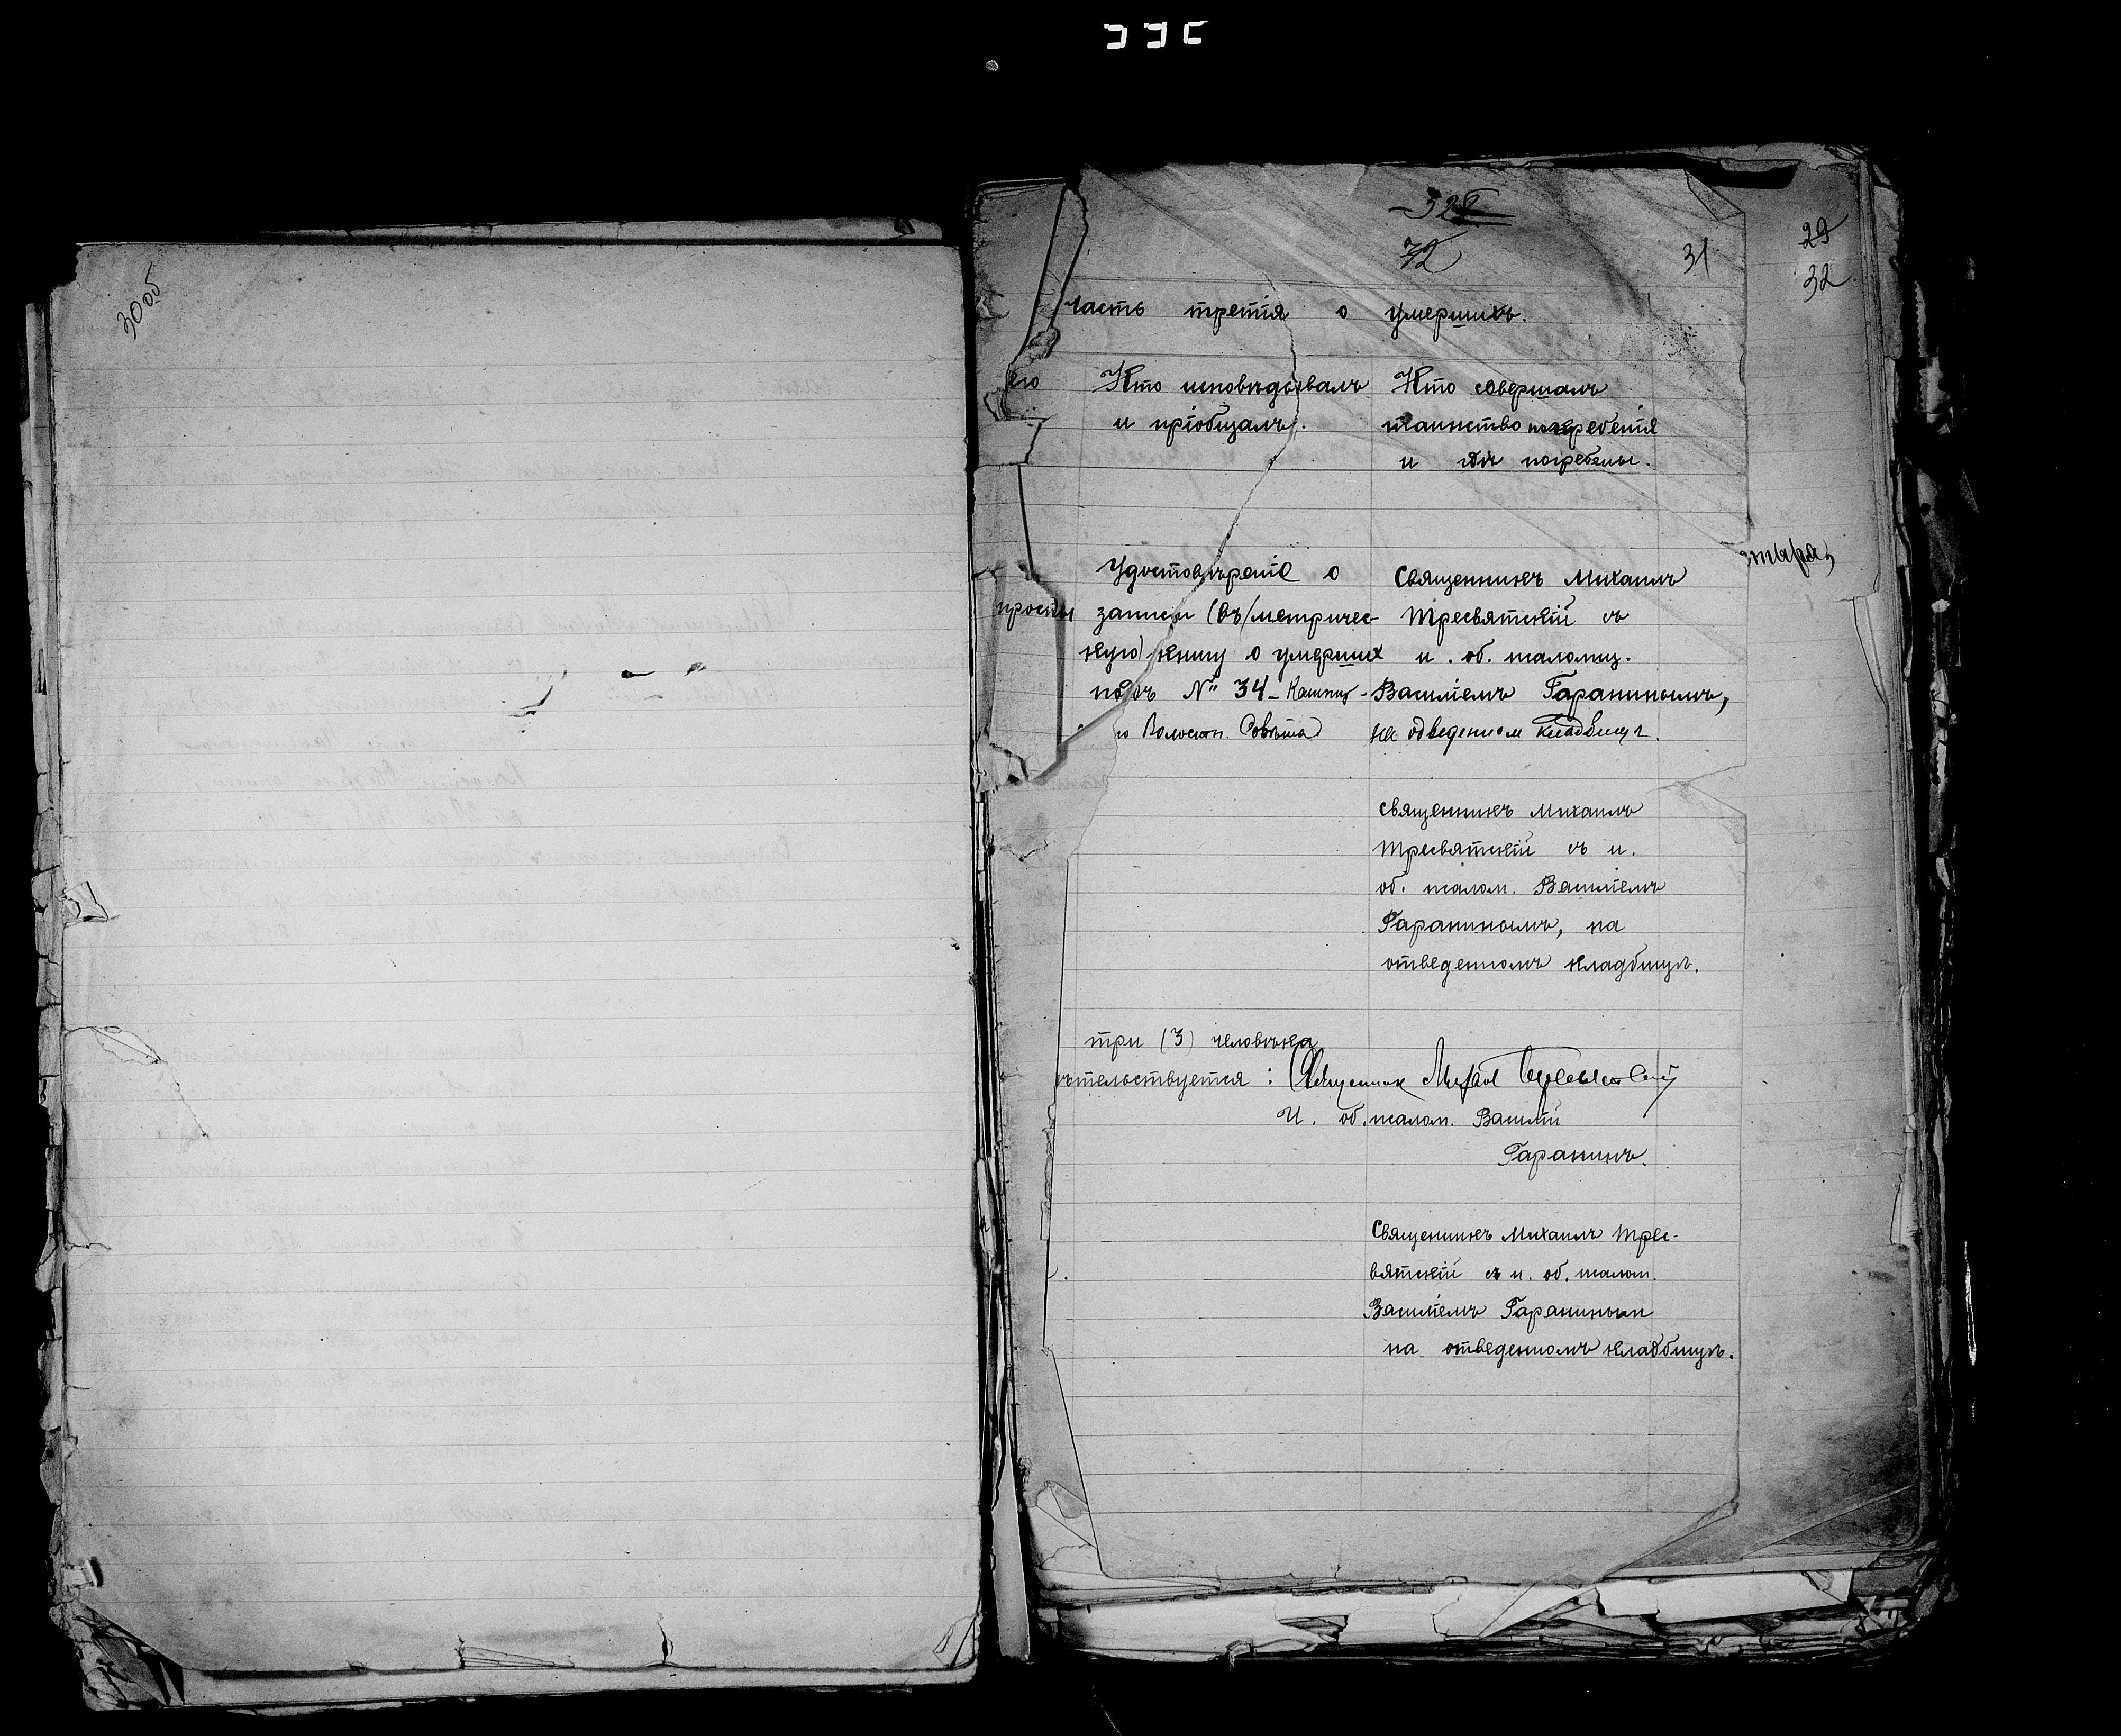 30 об
72
31
29
32
часть третія о умершихъ.
его
Кто исповѣдывалъ
и пріобщалъ.
Кто совершалъ
таинство погребенія
и гдѣ погребены.
Удостовѣреніе о
записи (въ) метричес-
кую) книгу о умерших
подъ № 34
Волостн. Совѣта
Священникъ Михаилъ
Тресвятскій съ
и. об. псаломщ.
Василіемъ Гаранинымъ,
на отведеном кладбищѣ.
Священникъ Михаилъ
Тресвятскій съ и.
об. псалом. Василіемъ
Гаранинымъ, на
отведенномъ кладбищѣ.
три (3) человѣка
ѣтельствуется: Священник Михаил Тресвятскій
И. об. псалом. Василій
Гаранинъ.
Священникъ Михаилъ Трес-
вятскій съ и. об. псалом.
Василіемъ Гараниным
на отведенномъ кладбищѣ.